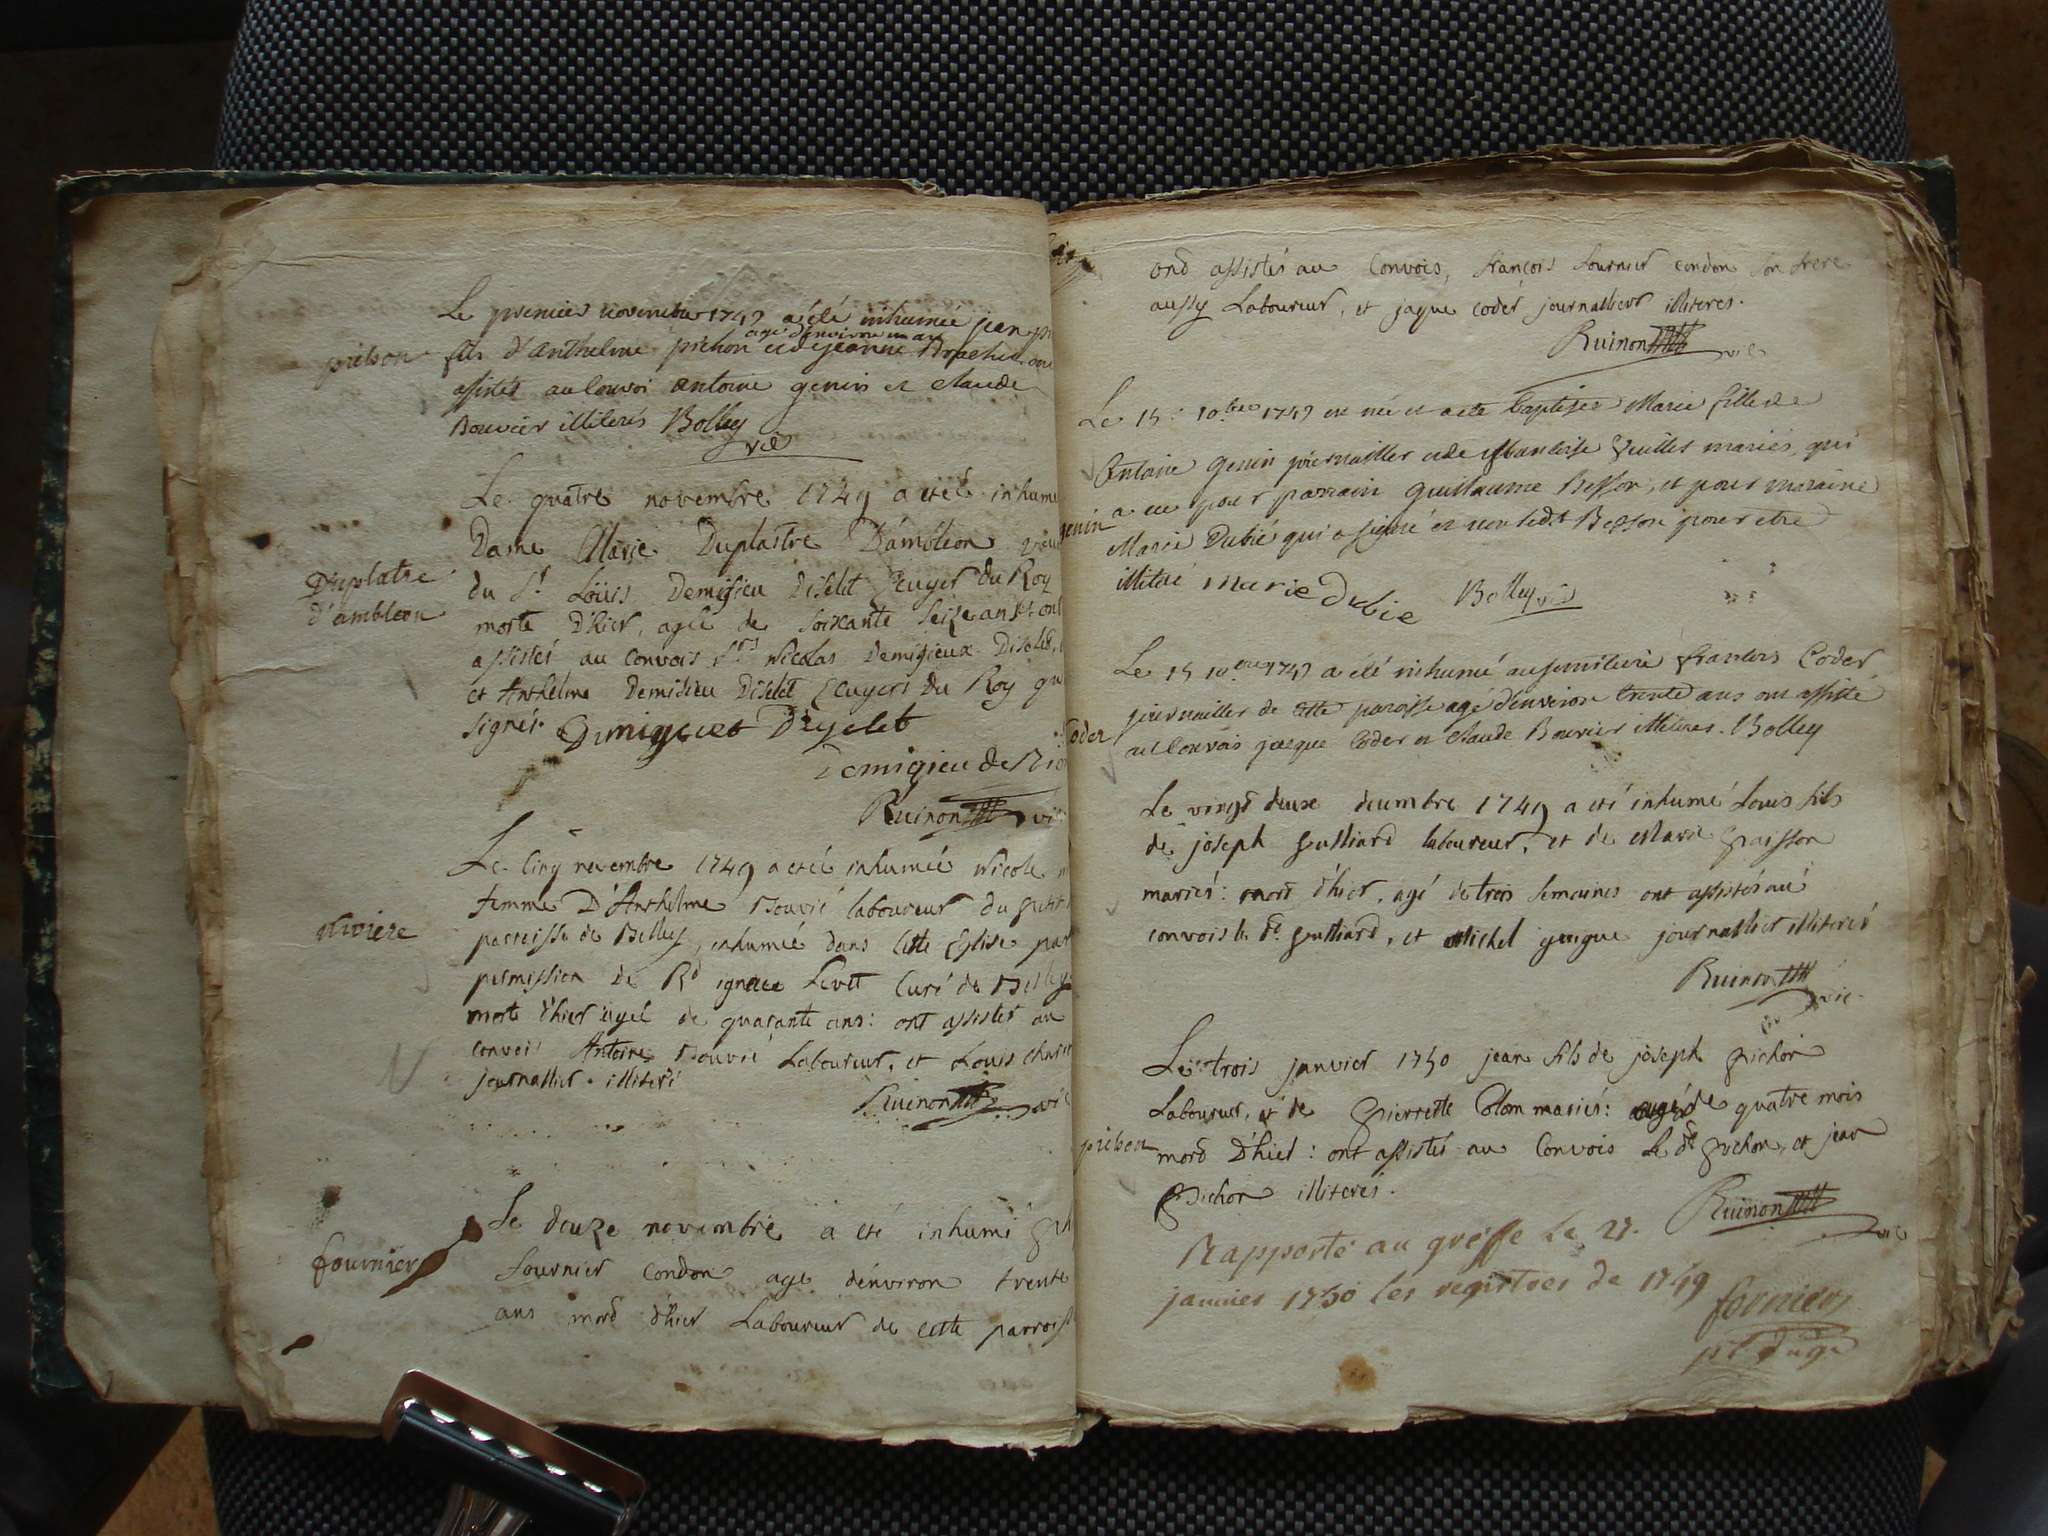 Le premier novembre 1749 a été inhumée jean
pichon
agé d'environ un an
fils d'Anthelme pichon et de jeanne
assistés au Convoi antoine genin et claude
Bouvier illiterés Bolley
vic
Le quatre novembre 1749 a eteé inhumé
Dame Marie Duplastre D'ambléon
Duplatre
d'ambleon
du Sr Loüis Demigieu Diselet Ecuyer du Roy
morte D'hier, ageé de soixante seize ans: ont
assistés au convois, Srs Nicolas Demigieux Diselet,
et Anthelme Demigieu Diselet Ecuyers du Roy
signés. Demigieu D'iyzelet
Demigieu de
Ruinon vic
Le Cinq novembre 1749 a eteé inhumeé Nicole
femme D'Anthelme Bouvié laboureur du petit
riviere
parroisse de Belley, inhumeé dans cette Eglise par
permission de Rd ignace Curé de Belley
morte d'hier ageé de quarante ans: ont assistes au
convois Antoine Bouvié Laboureur, et Louis
journallier. illiteré
Ruinon vic
Le douze novembre a eté inhumé
fournier
fournier condon age d'environ trente
ans mord d'hier Laboureur de cette parroisse
ond assistés au Convois, françois fournier condon son frere
aussy Laboureur, et jaque coder journallier illiterés.
Ruinon vic
Le 15: 10bre 1749 est née et a ete baptisée Marie fille de
Antoine Genin journaillier et de mariés, qui
genin
a eu pour parrain guillaume Besson, et pour maraine
Marie Dubié qui a signé et non ledt Besson pour etre
illiteré Marie Dubie Bolley vic
Le 15 10bre 1749 a été inhumé au semitiere francois Coder
journaillier de cette paroisse agé d'environ trente ans ont assisté
coder
au Convois jacque Coder et claude Bouvier illiteres. Bolley
Le vingd deuxe decembre 1749 a eté inhumé Louis fils
de joseph gulliard laboureur, et de Marie
mariés: mord d'hier, agé de trois semaines ont assistés au
convois le dt gulliard, et Michel journallier illiterés
Ruinon vic.
Le trois janvier 1750 jean fils de joseph pichon
Laboureur, et de pierrette Colon mariés: agé de quatre mois
pichon
mord D'hiel: ont assistés au Convois Le dt pichon, et jean
pichon illiterés.
Ruinon vic
Rapporté au greffe le 21.
janvier 1750 les registres de 1749
fornier